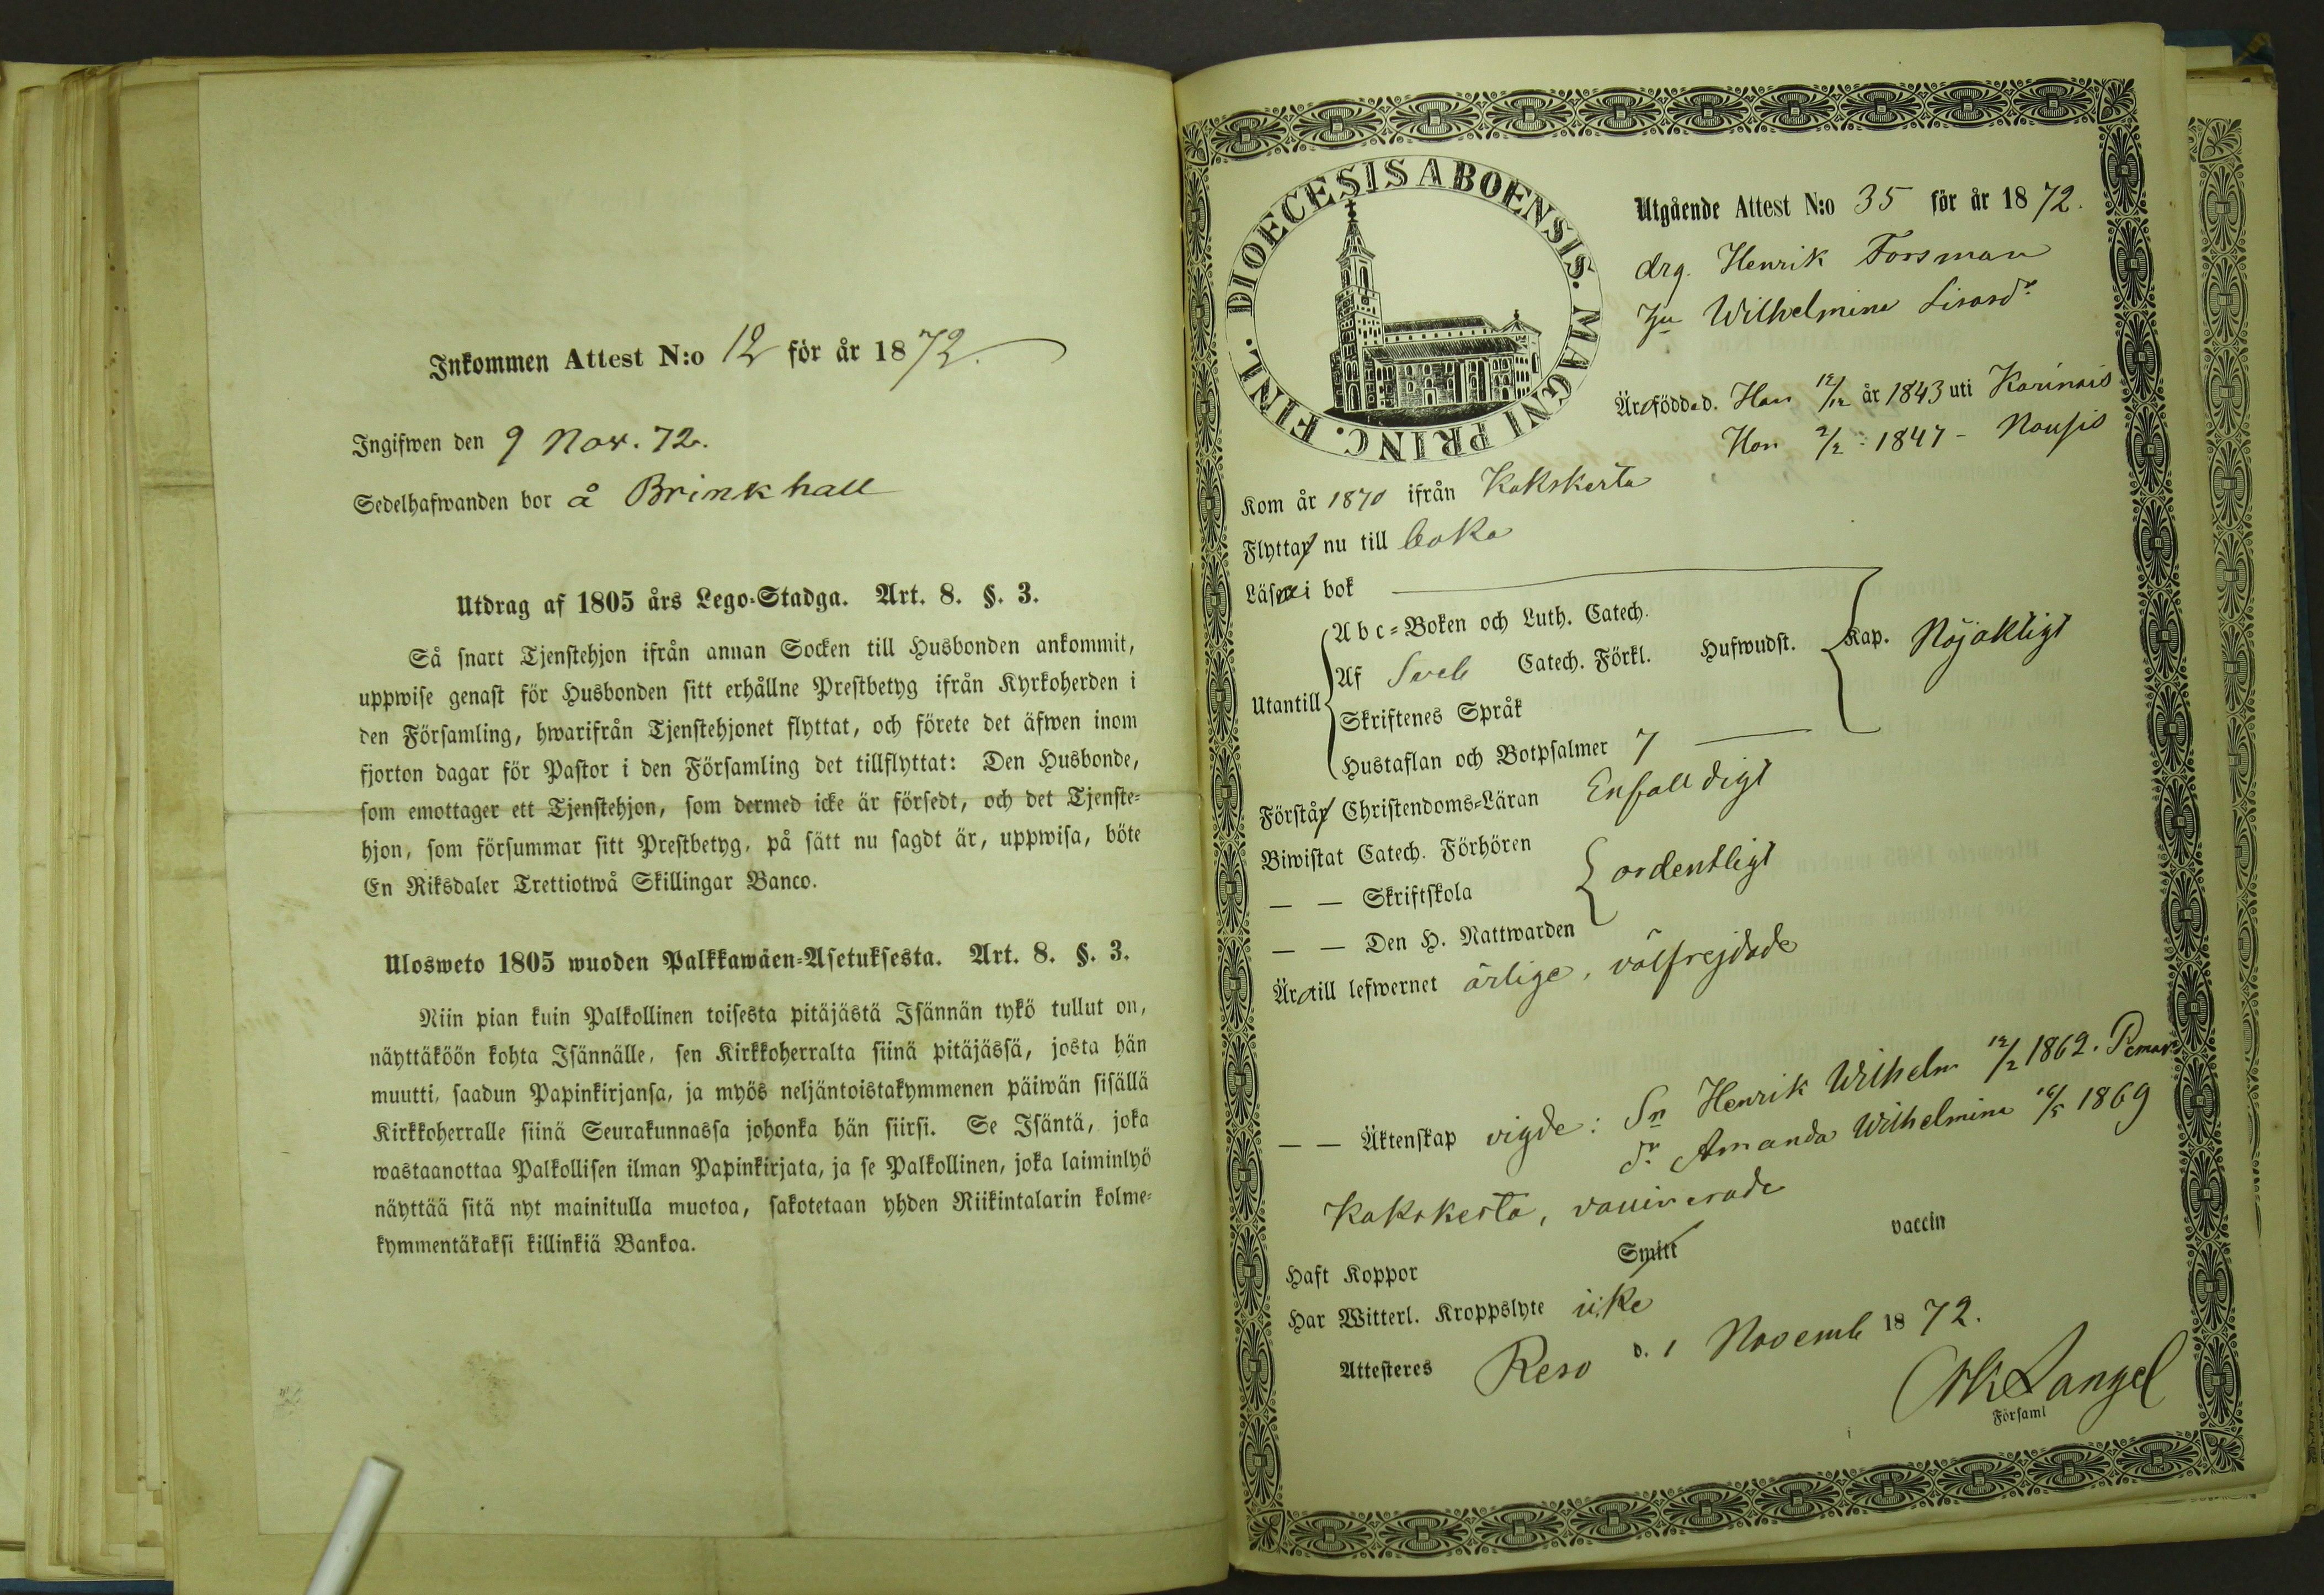 Inkommen Attest N:o 12 för år 1872.
Ingifwen den 9 Nov. 72.
Sedelhafwanden bor å Brinkhall
Utdrag af 1805 års Lego-Stadga. Art. 8. §. 3.
Så snart Tjenstehjon ifrån annan Socken till Husbonden ankommit,
uppwise genast för Husbonden sitt erhållne Prestbetyg ifrån Kyrkoherden i
den Församling, hwarifrån Tjenstehjonet flyttat, och förete det äfwen inom
fjorton dagar för Pastor i den Församling det tillflyttat: Den Husbonde,
som emottager ett Tjenstehjon, som dermed icke är försedt, och det Tjenste-
hjon, som försummar sitt Prestbetyg, på sätt nu sagdt är, uppwisa, böte
En Riksdaler Trettiotwå Skillingar Banco.
Ulosweto 1805 wuoden Palkkawäen-Asetuksesta. Art. 8. §. 3.
Niin pian kuin Palkollinen toisesta pitäjästä Isännän tykö tullut on,
näyttäköön kohta Isännälle, sen Kirkkoherralta siinä pitäjässä, josta hän
muutti, saadun Papinkirjansa, ja myös neljäntoistakymmenen päiwän sisällä
Kirkkoherralle siinä Seurakunnassa johonka hän siirsi. Se Isäntä, joka
wastaanottaa Palkollisen ilman Papinkirjata, ja se Palkollinen, joka laiminlyö
näyttää sitä nyt mainitulla muotoa, sakotetaan yhden Riikintalarin kolme-
kymmentäkaksi killinkiä Bankoa.
DIOECESIS ABOENSIS. MAGNI PRINC. FINL.
Utgående Attest N:o 35 för år 1872.
drg. Henrik Forsman
hu Wilhelmina Lisasdr
Äro födde d. Han 12/12 år 1843 uti Karinais
Hon 2/2 - 1847 - Nousis
Kom år 1870 ifrån Kakskerta
Flytta nu till
Läsa i bok
Utantill
Abc-Boken och Luth. Catech.
Af Sveb Catech. Förkl. Hufwudst. Kap. Nöjaktigt
Skriftenes Språk
Hustaflan och Botpsalmer 7
Förstå Christendoms-Läran Enfalldigt
Biwistat Catech. Förhören
— — Skriftskola ordentligt
— — Den H. Nattwarden
Äro till lefwernet ärlige, välfrejdade
— — Äktenskap vigde: Sn Henrik Wilhelm 12/2 1862. Pemar
dr Amanda Wilhelmina 16/5 1869
Kakskerta, vaccinerade
Haft Koppor Smitt vaccin
Har Witterl. Kroppslyte icke
Attesteres Reso d. 1 Novemb 1872.
Langel
Församl